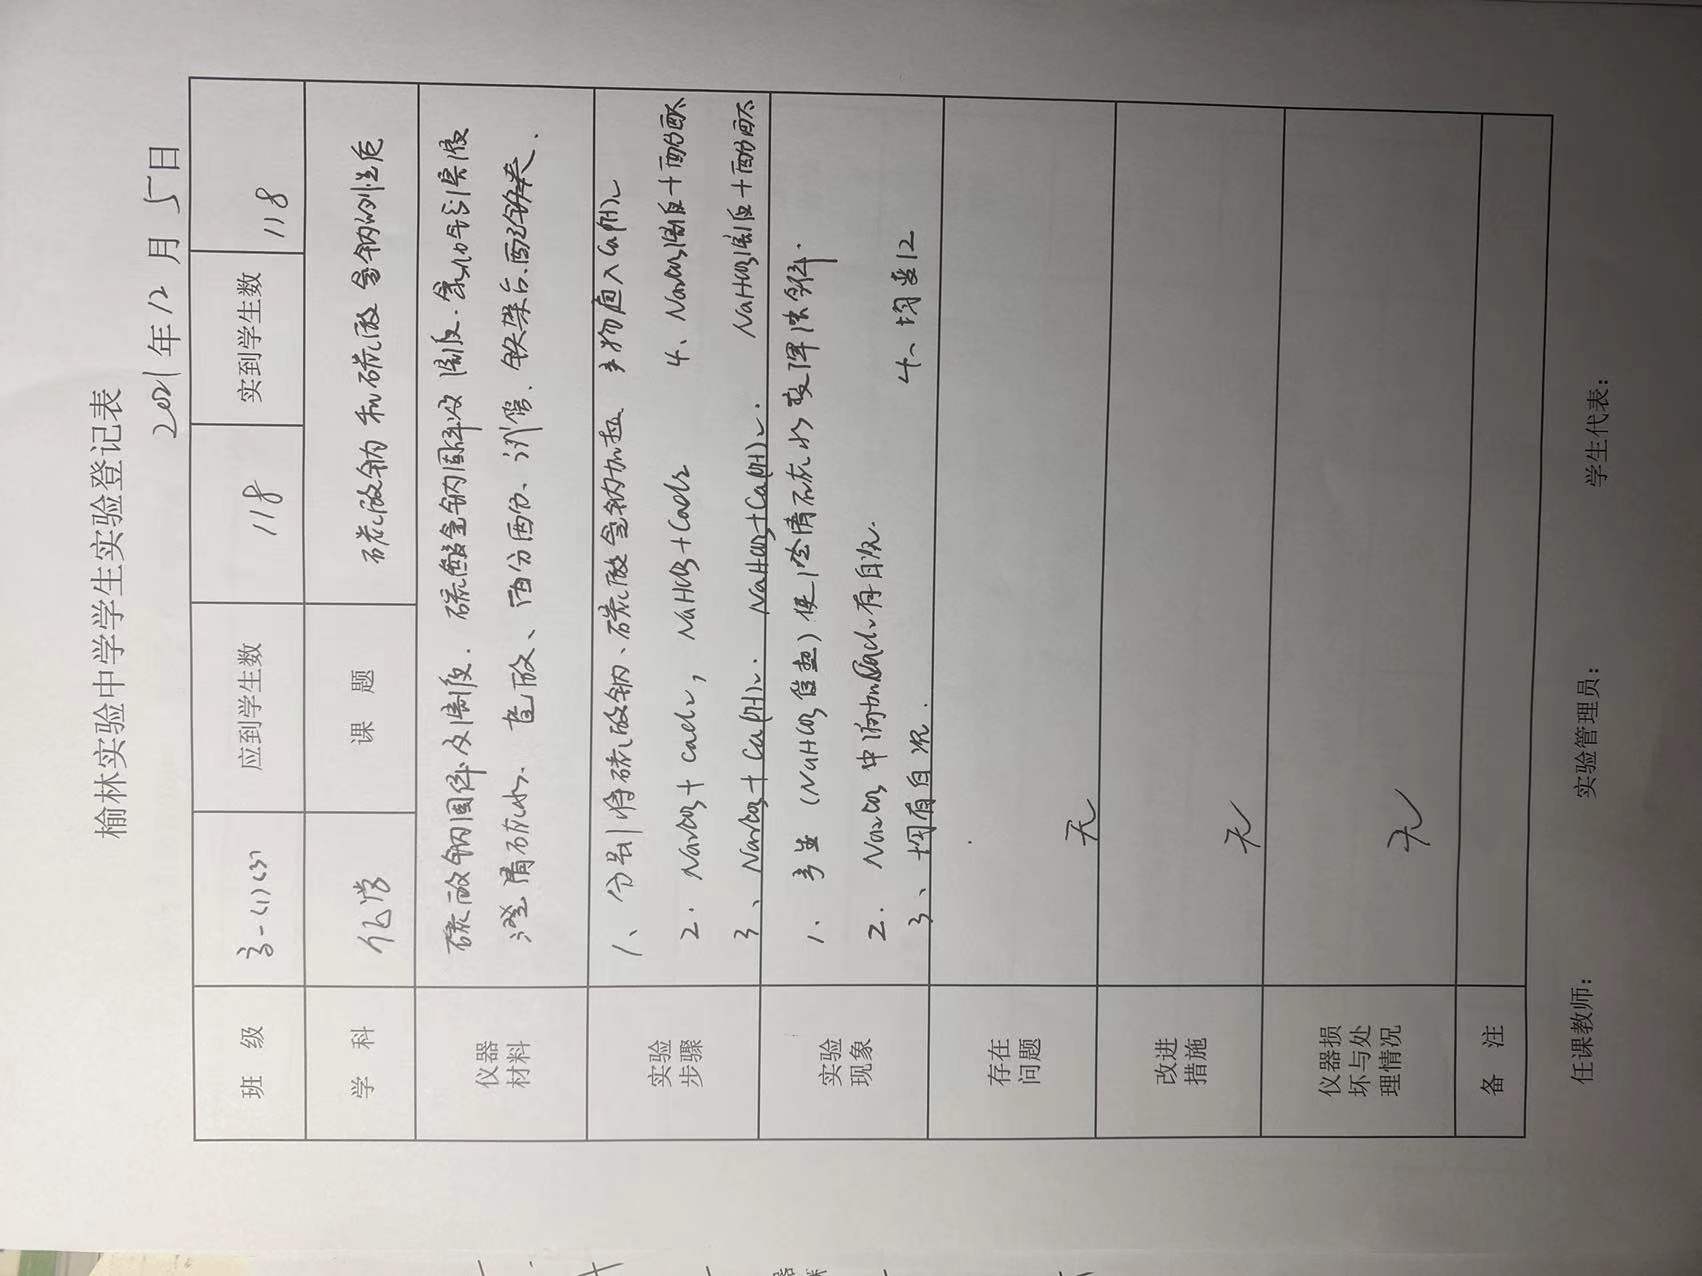 榆林实验中学学生实验登记表
2021年12月5日
班 级 高一(1)(3) 应到学生数 118 实到学生数 118
学 科 化学 课 题 碳酸钠和碳酸氢钠的性质
仪器材料 碳酸钠固体及溶液. 碳酸氢钠固体及溶液. 氯化钙溶液
澄清石灰水、盐酸、酚酞、试管、铁架台.
实验步骤 1、分别将碳酸钠、碳酸氢钠加热 产物通入Ca(OH)2
2. Na2CO3 + CaCl2, NaHCO3 + CaCl2 4、Na2CO3溶液+酚酞
3、Na2CO3 + Ca(OH)2. NaHCO3 + Ca(OH)2. NaHCO3溶液+酚酞
实验现象 1. 产生 (NaHCO3 ) 使澄清石灰水变浑浊.
2. Na2CO3 中滴加CaCl2有白沉. 4、均变红
3、均有白沉.
存在问题 无
改进措施 无
仪器损坏与处理情况 无
备 注
任课教师: 实验管理员: 学生代表: